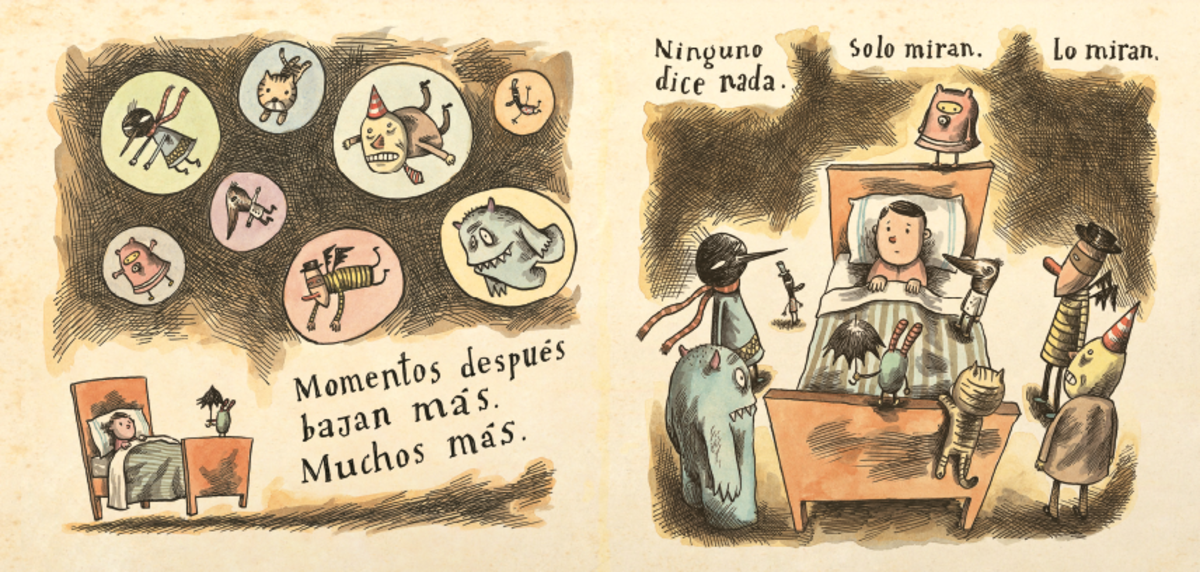 Momentos después
bajan más.
Muchos más.
Ninguno
dice nada.
Solo miran.
Lo miran.